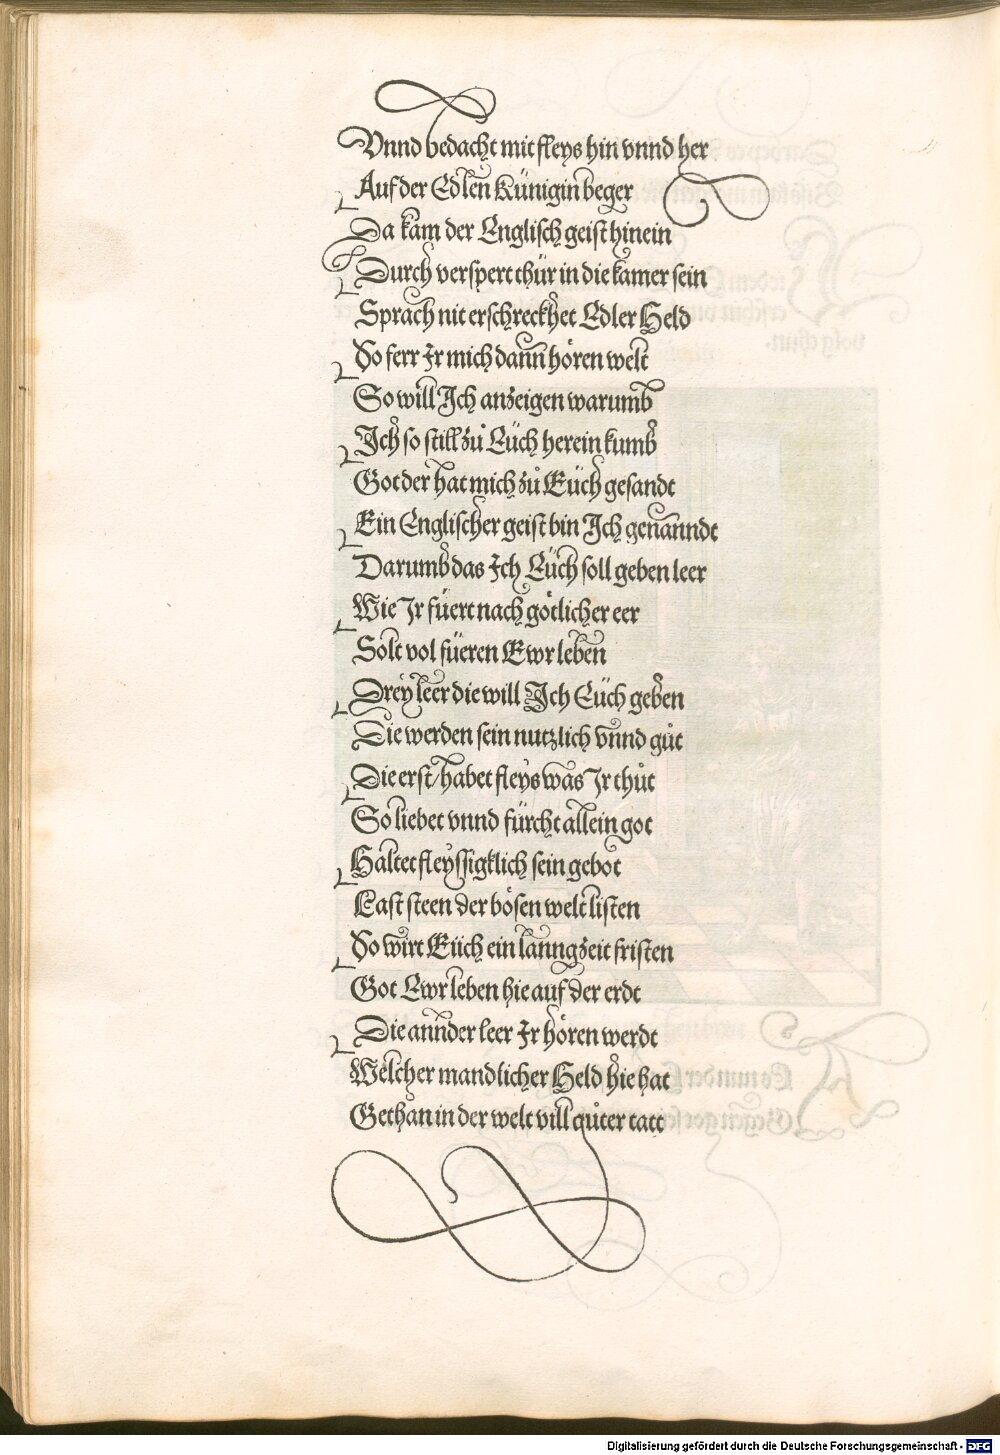 Vnnd bedacht mit fleys hin vnnd her
Auf der Edlen Künigin beger
Da kam der Englisch geist hinein
Durch verspert thür in die kamer sein
Sprach nit erschreckhet Edler Held
So ferr Ir mich dann hören welt
So will Ich anzeigen warumb
Ich so still zů Eüch herein kumb
Got der hat mich zů Eüch gesandt
Ein Englischer geist bin Ich genanndt
Darumb das Ich Eüch soll geben leer
Wie Ir füert nach götlicher eer
Solt vol füeren Ewr leben
Drey leer die will Ich Eüch geben
Die werden sein nutzlich vnnd gůt
Die erst/habet fleys was Ir thůt
So liebet vnnd fürcht allein got
Haltet fleyssigklich sein gebot
Last steen der bösen welt listen
So wirt Eüch ein lanng zeit fristen
Got Ewr leben hie auf der erdt
Die annder leer Ir hören werdt
Welcher mandlicher Held hie hat
Gethan in der welt vill gůter tatt
Digitalisierung gefördert durch die Deutsche Forschungsgemeinschaft - DFG